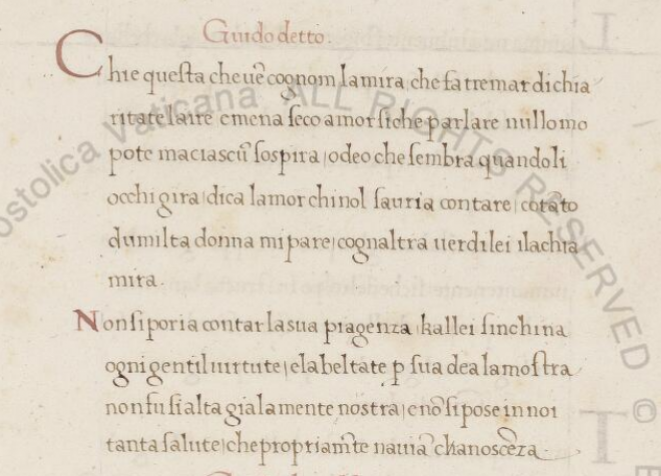 Guido detto.
Chie questa che uē cognom lamira che fa tremar di chia
ritate laire e mena seco amor siche parlare null omo
pote ma ciascū sospira odeo che sembra quando li
occhi gira dica lamor chi nol sauria contare cotāto
dumilta donna mi pare cognaltra uer di lei ilachia
mira.
Non si poria contar la sua piagenza kallei sinchina
ogni gentil uirtute e la beltate p sua dea la mostra
non fu si alta gia la mente nostra e nō si pose in noi
tanta salute che propriam̄te nauiā chanoscēza.
Apostolica Vaticana ALL RIGHTS RESERVED ©